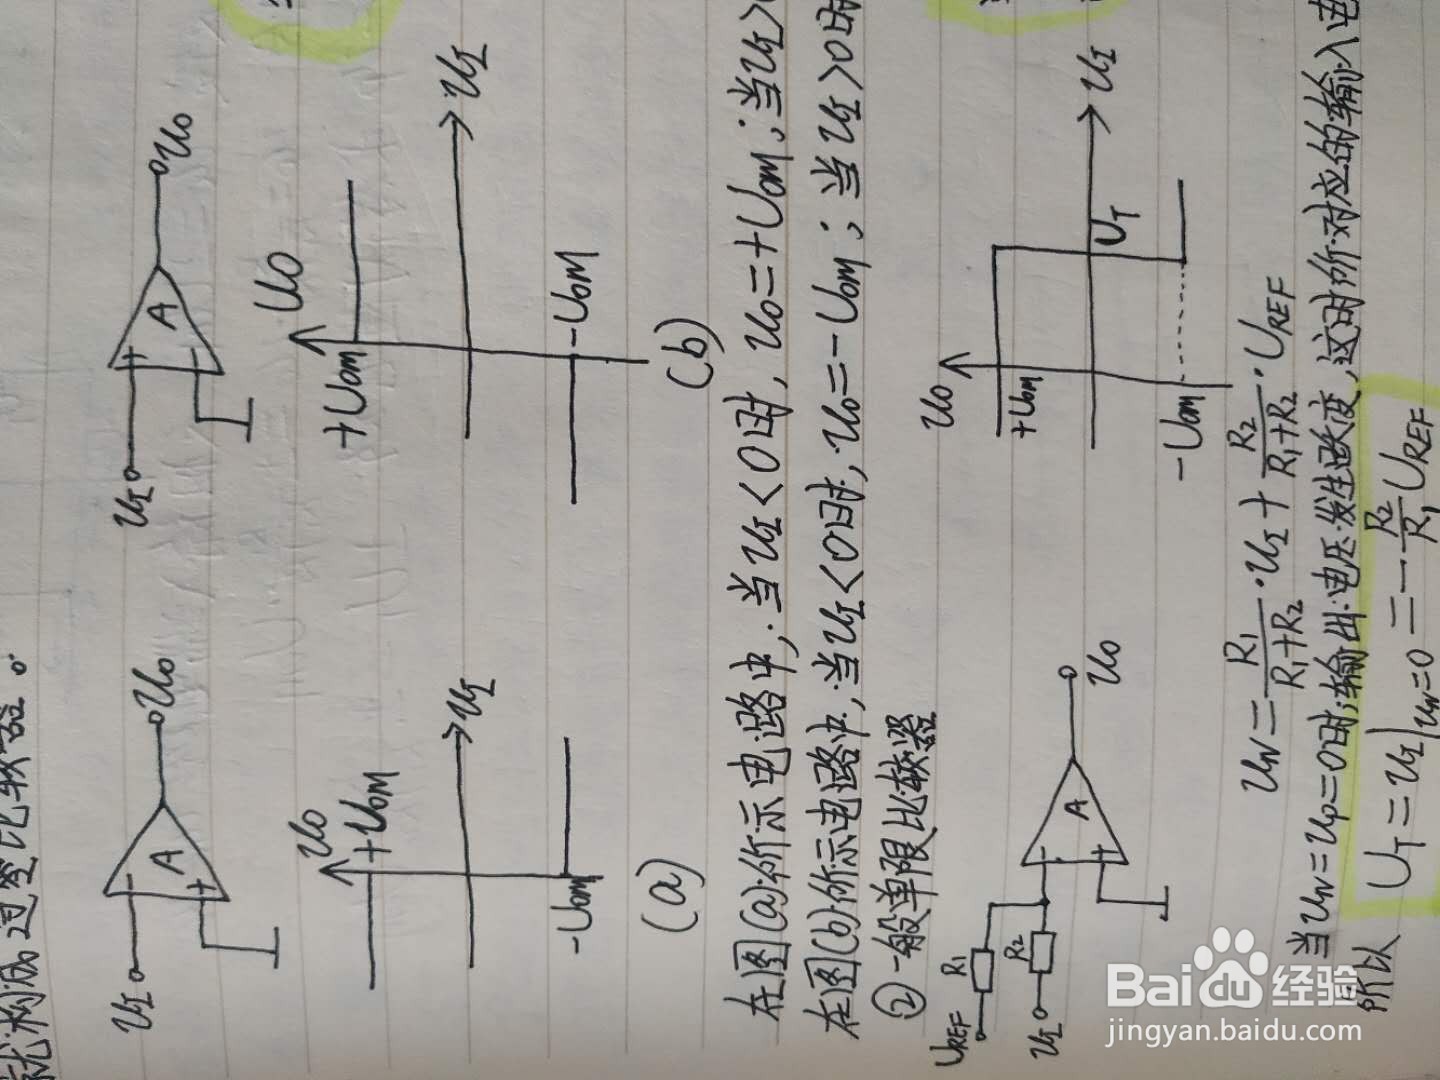 就构成过零比较器。
uI
A
uo
uI
A
uo
uo
+UOM
uI
-UOM
(a)
uo
+UOM
uI
-UOM
(b)
在图(a)所示电路中,当uI<0时,uo=+UOM;当uI>
在图(b)所示电路中,当uI<0时,uo=-UOM;当uI>0时
②一般单限比较器
UREF
R1
uI
R2
A
uo
uo
+UOM
UT
uI
-UOM
uN=R1/(R1+R2)·uI+R2/(R1+R2)·UREF
当uN=uP=0时,输出电压发生跃变,这时所对应的输入电
所以 UT=uI|uN=0=-R2/R1 UREF
Baidu经验
jingyan.baidu.com